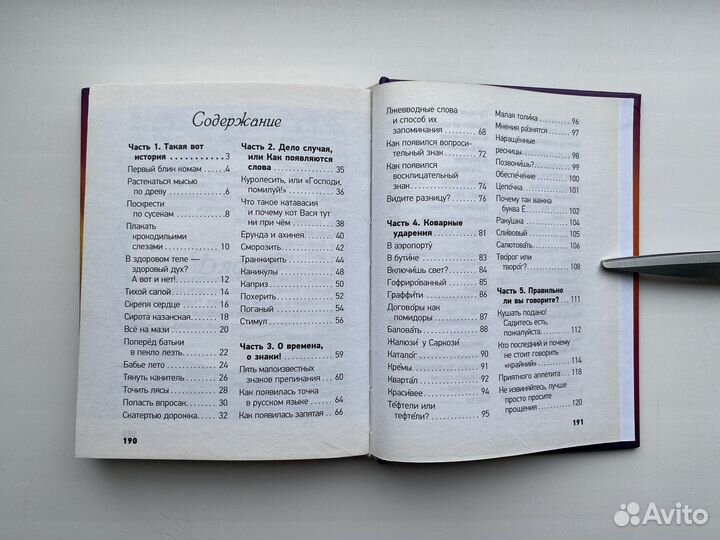 Содержание
Часть 1. Такая вот
история . . . . . . . . . . . 3
Первый блин комам . . . . . 4
Растекаться мыслью
по древу . . . . . . . . . . . . 6
Поскрести
по сусекам . . . . . . . . . . . 8
Плакать
крокодильими
слезами . . . . . . . . . . . . 10
В здоровом теле —
здоровый дух?
А вот и нет! . . . . . . . . . 12
Тихой сапой . . . . . . . . . 14
Скрепя сердце . . . . . . . 16
Сирота казанская . . . . . 18
Всё на мази . . . . . . . . . 20
Поперёд батьки
в пекло лезть . . . . . . . . 22
Бабье лето . . . . . . . . . . 24
Тянуть канитель . . . . . . 26
Точить лясы . . . . . . . . . 28
Попасть впросак . . . . . . 30
Скатертью дорожка . . . . 32
Часть 2. Дело случая,
или Как появляются
слова . . . . . . . . . . . . 35
Куролесить, или «Господи,
помилуй!» . . . . . . . . . . 36
Что такое катавасия
и почему кот Вася тут
ни при чём . . . . . . . . . 38
Ерунда и ахинея . . . . . . 40
Сморозить . . . . . . . . . . 42
Транжирить . . . . . . . . . 44
Каникулы . . . . . . . . . . . 48
Каприз . . . . . . . . . . . . 50
Похерить . . . . . . . . . . . 52
Поганый . . . . . . . . . . . 54
Стимул . . . . . . . . . . . . 56
Часть 3. О времена,
о знаки! . . . . . . . . . . 59
Пять малоизвестных
знаков препинания . . . . 60
Как появилась точка
в русском языке . . . . . . 64
Как появилась запятая . . 66
190
Лжевводные слова
и способ их
запоминания . . . . . . . . 68
Как появился вопроси-
тельный знак . . . . . . . . 72
Как появился
восклицательный
знак . . . . . . . . . . . . . . 74
Видите разницу? . . . . . . 76
Часть 4. Коварные
ударения . . . . . . . . . 81
В аэропорту́ . . . . . . . . . 82
В бути́ке . . . . . . . . . . . 83
Включи́шь свет? . . . . . . 84
Гофриро́ванный . . . . . . 85
Граффи́ти . . . . . . . . . . 86
Догово́ры как
помидоры . . . . . . . . . . 87
Балова́ть . . . . . . . . . . . 88
Жалюзи́ у Саркози́ . . . . 89
Катало́г . . . . . . . . . . . . 90
Кре́мы . . . . . . . . . . . . . 91
Кварта́л . . . . . . . . . . . . 92
Краси́вее . . . . . . . . . . . 94
Те́фтели или
тефте́ли? . . . . . . . . . . . 95
Малая толи́ка . . . . . . . . 96
Мнения ра́знятся . . . . . 97
Наращённые
ресницы . . . . . . . . . . . 98
Позвони́шь? . . . . . . . . . 99
Обеспе́чение . . . . . . . . 100
Цепо́чка . . . . . . . . . . . 101
Почему так важна
буква Ё . . . . . . . . . . . . 102
Раку́шка . . . . . . . . . . . 104
Сли́вовый . . . . . . . . . . 105
Салютова́ть . . . . . . . . . 106
Тво́рог или
творо́г? . . . . . . . . . . . . 108
Часть 5. Правильно
ли вы говорите? . . . . 111
Кушать подано!
Садитесь есть,
пожалуйста . . . . . . . . . 112
Кто последний и почему
не стоит говорить
«крайний» . . . . . . . . . . 114
Приятного аппетита . . . 118
Не извиняйтесь, лучше
просто просите
прощения . . . . . . . . . . 120
191
Avito